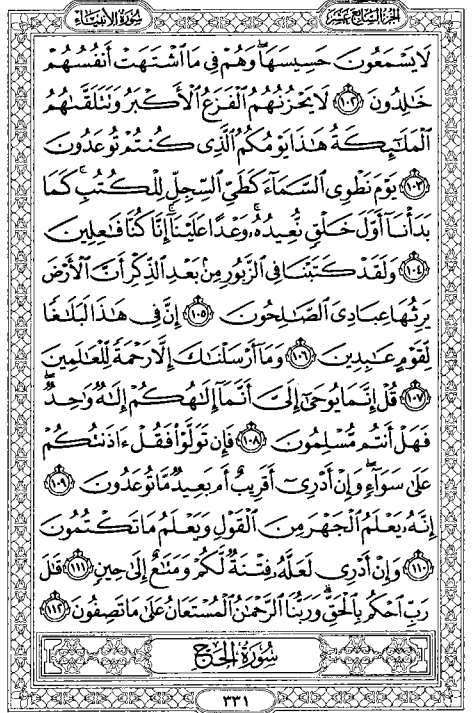 الجزء السابع عشر
سورة الأنبياء
لَا يَسْمَعُونَ حَسِيسَهَا ۖ وَهُمْ فِي مَا اشْتَهَتْ أَنفُسُهُمْ
خَالِدُونَ ﴿١٠٢﴾ لَا يَحْزُنُهُمُ الْفَزَعُ الْأَكْبَرُ وَتَتَلَقَّاهُمُ
الْمَلَائِكَةُ هَٰذَا يَوْمُكُمُ الَّذِي كُنتُمْ تُوعَدُونَ
﴿١٠٣﴾ يَوْمَ نَطْوِي السَّمَاءَ كَطَيِّ السِّجِلِّ لِلْكُتُبِ ۚ كَمَا
بَدَأْنَا أَوَّلَ خَلْقٍ نُّعِيدُهُ ۚ وَعْدًا عَلَيْنَا ۚ إِنَّا كُنَّا فَاعِلِينَ
﴿١٠٤﴾ وَلَقَدْ كَتَبْنَا فِي الزَّبُورِ مِن بَعْدِ الذِّكْرِ أَنَّ الْأَرْضَ
يَرِثُهَا عِبَادِيَ الصَّالِحُونَ ﴿١٠٥﴾ إِنَّ فِي هَٰذَا لَبَلَاغًا
لِّقَوْمٍ عَابِدِينَ ﴿١٠٦﴾ وَمَا أَرْسَلْنَاكَ إِلَّا رَحْمَةً لِّلْعَالَمِينَ
﴿١٠٧﴾ قُلْ إِنَّمَا يُوحَىٰ إِلَيَّ أَنَّمَا إِلَٰهُكُمْ إِلَٰهٌ وَاحِدٌ ۖ
فَهَلْ أَنتُم مُّسْلِمُونَ ﴿١٠٨﴾ فَإِن تَوَلَّوْا فَقُلْ آذَنتُكُمْ
عَلَىٰ سَوَاءٍ ۖ وَإِنْ أَدْرِي أَقَرِيبٌ أَم بَعِيدٌ مَّا تُوعَدُونَ ﴿١٠٩﴾
إِنَّهُ يَعْلَمُ الْجَهْرَ مِنَ الْقَوْلِ وَيَعْلَمُ مَا تَكْتُمُونَ
﴿١١٠﴾ وَإِنْ أَدْرِي لَعَلَّهُ فِتْنَةٌ لَّكُمْ وَمَتَاعٌ إِلَىٰ حِينٍ ﴿١١١﴾ قَالَ
رَبِّ احْكُم بِالْحَقِّ ۗ وَرَبُّنَا الرَّحْمَٰنُ الْمُسْتَعَانُ عَلَىٰ مَا تَصِفُونَ ﴿١١٢﴾
سُورَةُ الْحَجِّ
٣٣١